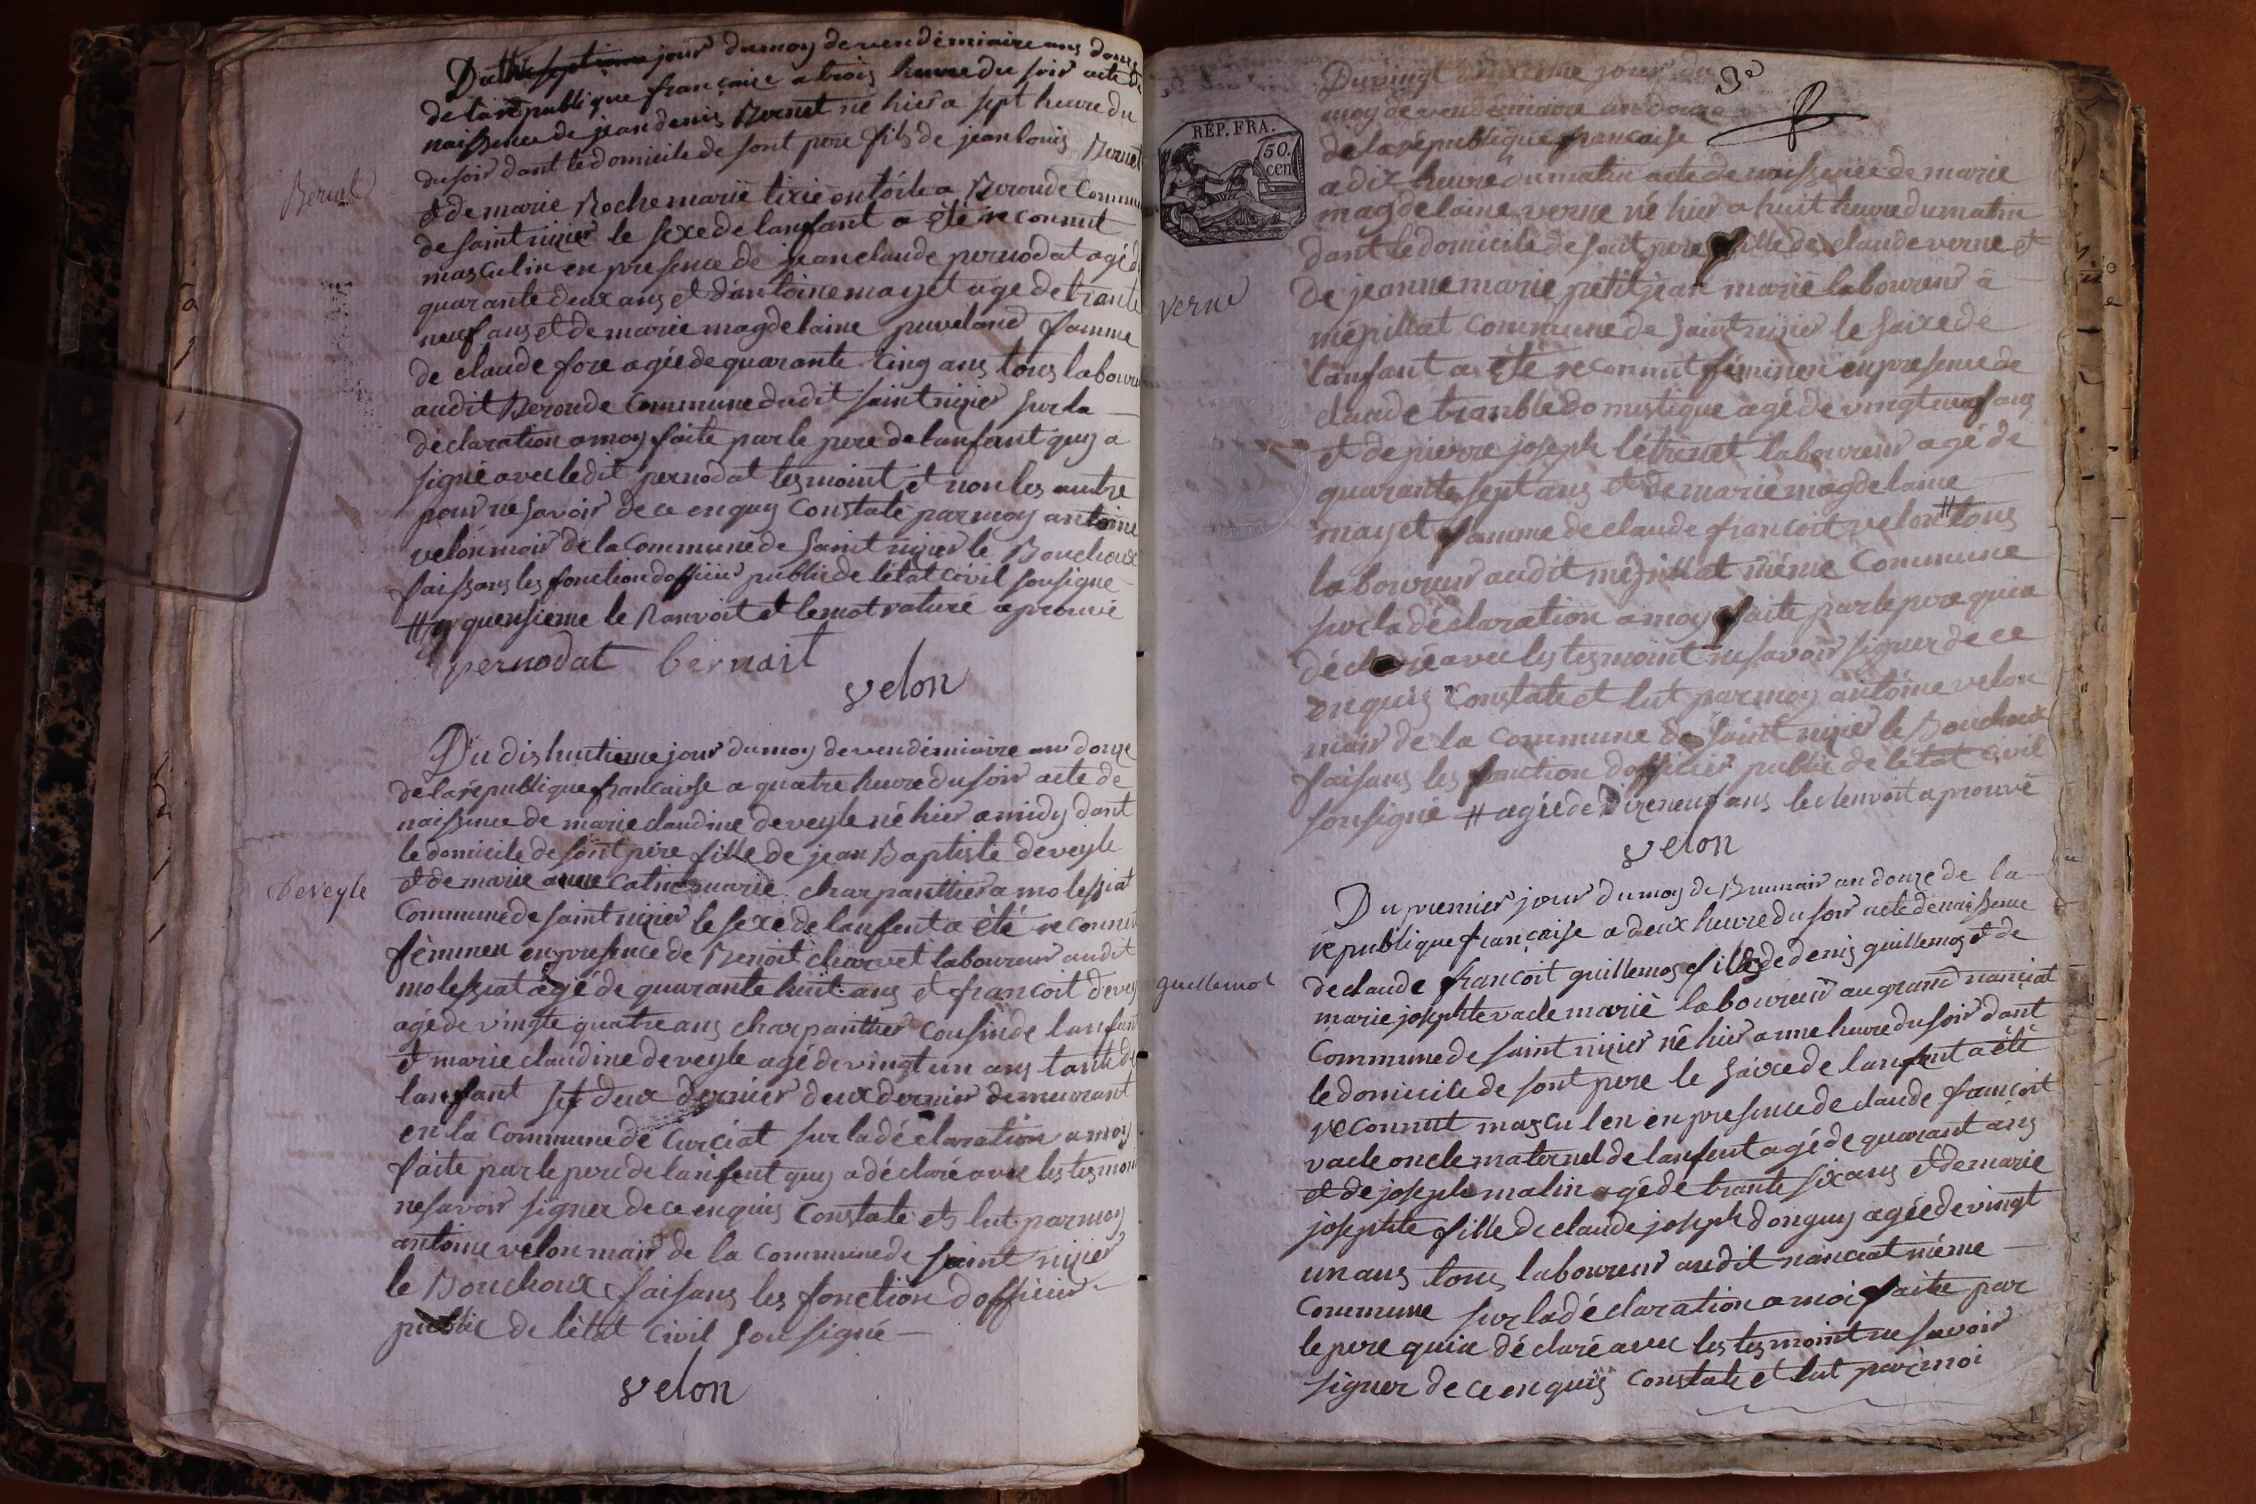 Du # septieme jour du moy de vendémiaire ans douze
de la republique française a trois heure du soir acte de
naissence de jean denis Bernet né hier a sept heure du
du soir dant le domicile de sont pere fils de jean louis Bernet
Bernet
et de marie Roche marie tixié en toile a Beroude Commune
de saint nizier le sexe de lanfant a été reconnut
masculin en presence de jean claude pernodat agé de
quarante deux ans et d'antoine mayet age de trante
neuf ans et de marie magdelaine puveland famme
de claude fore agée de quarante cinq ans tous laboureur
audit Beroude Commune dudit saint nizier sur la
déclaration a moy faite par le pere de lanfant quy a
signé avec ledit pernodat tesmoint et non les autre
pour ne savoir de ce enquy Constaté par moy antoine
velon mair de la Commune de saint nizier le Bouchoux
faissans les fonction dofficier public de l'état civil sousigné
# quensieme le Ranvoit et le mot raturé aprouvé
pernodat bernait
velon
Du dishuitieme jour du moy de vendémiaire an douze
de la république francaise a quatre heure du soir acte de
naissence de marie claudine deveyle né hier a midy dant
le domicile de sont pére fille de jean Baptiste deveyle
Deveyle
et de marie anne catin marié charpanttier a molessiat
Commune de saint nizier le sexe de lanfent a été reconnut
fémmen en presence de Benoit charvet laboureur audit
molessiat agé de quarante huit ans et francoit devey
agé de vingte quatre ans charpanttier cousin de lanfant
et marie claudine deveyle agé de vingt un ans tante de
lanfant set deux dernier deux dernier demeurant
en la Commune de Curciat sur la déclaration a moy
faite par le pere de lanfent quy a déclaré avec les tesmoin
ne savoir signer de ce enquis Constaté et lut par moy
antoine velon mair de la Commune de saint nizier
le Bouchoux faisans les fonction dofficier
public de l'état Civil sousigné
velon
3e
Du vingt jour du
moy de vendémiaire an douze
de la république francaise
REP. FRA.
50.
cen
a dix heure du matin acte de naissence de marie
magdelaine verne né hier a huit heure du matin
dant le domicile de sont pere fille de claude verne et
verne
de jeanne marie petitjean marié laboureur a
mépillat Commune de saint nizier le saixe de
lanfant a été reconnut féminen en presence de
claude tranble domistique agé de vingt neuf ans
et de pierre joseph létrenet laboureur agé de
quarante sept ans et de marie magdelaine
mayet famme de claude francoit velon # tous
laboureur audit mépillat méme Commune
sur la déclaration a moy faite par le pere qui a
déclaré avec les tesmoint ne savoir signer de ce
enquis Constaté et lut par moy antoine velon
mair de la Commune de saint nizier le Bouchoux
faisans les fonction dofficier public de l'état civil
sousigné # agée de dixneuf ans le Renvoit aprouvé
velon
Du premier jour du moy de Brumair an douze de la
république française a deux heure du soir acte de naissence
guillemot
de claude françoit guillemos fils de denis guillemos et de
marie josephte vacle marié laboureur au grand nanciat
Commune de saint nizier né hier a une heure du soir dant
le domicile de sont pere le saixe de lanfent a été
reconnut masculen en presence de claude francoit
vacle oncle maternel de lanfent agé de quarant ans
et de joseph malin agé de trante six ans et de marie
josephte fille de claude joseph donguy agée de vingt
un ans tous laboureur audit nanceat méme
Commune sur la déclaration a moi faite par
le pere qui a déclaré avec les tesmoint ne savoir
signer de ce enquis Constaté et lut par moi